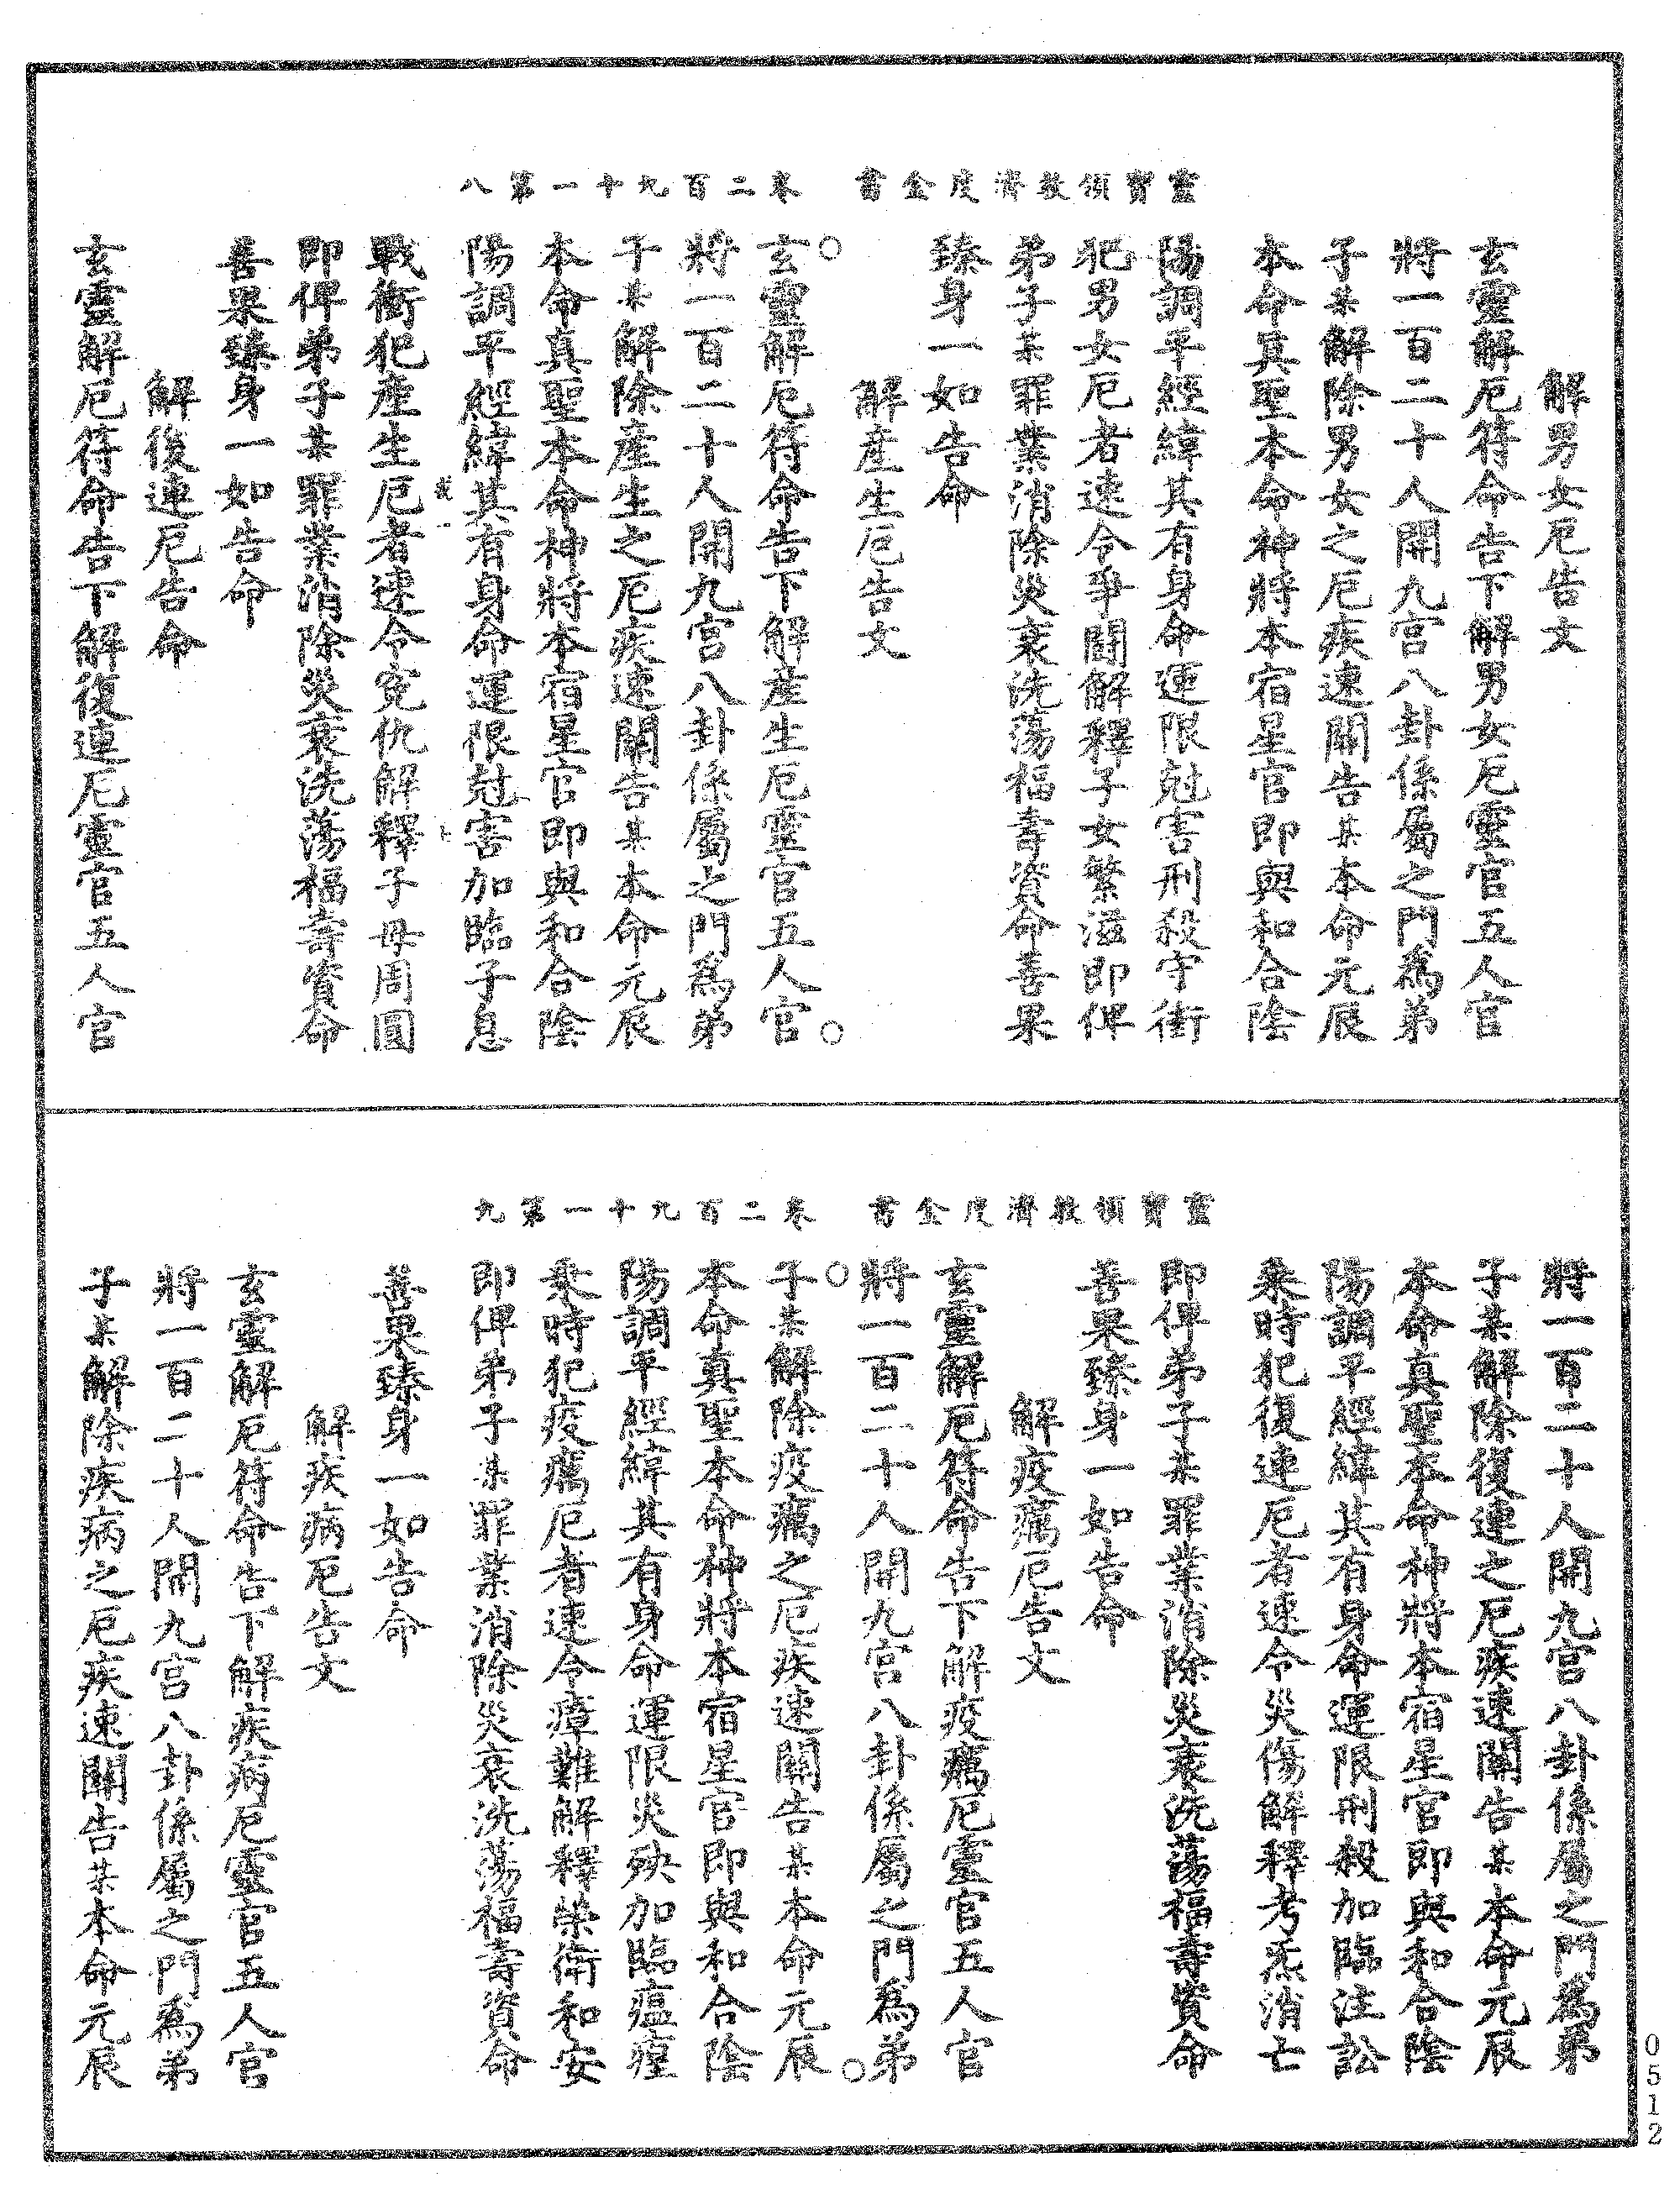 靈寶領教濟度金書　卷二百九十一第八
解男女厄告文
玄靈解厄符命告下解男女厄靈官五人官
將一百二十人開九宮八卦係屬之門為弟
子某解除男女之厄疾速關告某本命元辰
本命真聖本命神將本宿星官即與和合陰
陽調平經緯其有身命運限尅害刑殺守衝
犯男女厄者速令爭鬪解釋子女繁滋即俾
弟子某罪業消除災衰洗蕩福壽資命善果
臻身一如告命
解產生厄告文
玄靈解厄符命告下解產生厄靈官五人官
將一百二十人開九宮八卦係屬之門為弟
子某解除產生之厄疾速關告某本命元辰
本命真聖本命神將本宿星官即與和合陰
陽調平經緯其有身命運限尅害加臨子息
戰衝犯產生厄者速令寃仇解釋子母周圓
即俾弟子某罪業消除災衰洗蕩福壽資命
善果臻身一如告命
解復連厄告命
玄靈解厄符命告下解復連厄靈官五人官
靈寶領教濟度金書　卷二百九十一第九
將一百二十人開九宮八卦係屬之門為弟
子某解除復連之厄疾速關告某本命元辰
本命真聖本命神將本宿星官即與和合陰
陽調平經緯其有身命運限刑殺加臨注訟
乘時犯復連厄者速令災傷解釋考炁消亡
即俾弟子某罪業消除災衰洗蕩福壽資命
善果臻身一如告命
解疫癘厄告文
玄靈解厄符命告下解疫癘厄靈官五人官
將一百二十人開九宮八卦係屬之門為弟
子某解除疫癘之厄疾速關告某本命元辰
本命真聖本命神將本宿星官即與和合陰
陽調平經緯其有身命運限災殃加臨瘟㾮
乘時犯疫癘厄者速令瘴難解釋榮衛和安
即俾弟子某罪業消除災衰洗蕩福壽資命
善果臻身一如告命
解疾病厄告文
玄靈解厄符命告下解疾病厄靈官五人官
將一百二十人開九宮八卦係屬之門為弟
子某解除疾病之厄疾速關告某本命元辰
0512